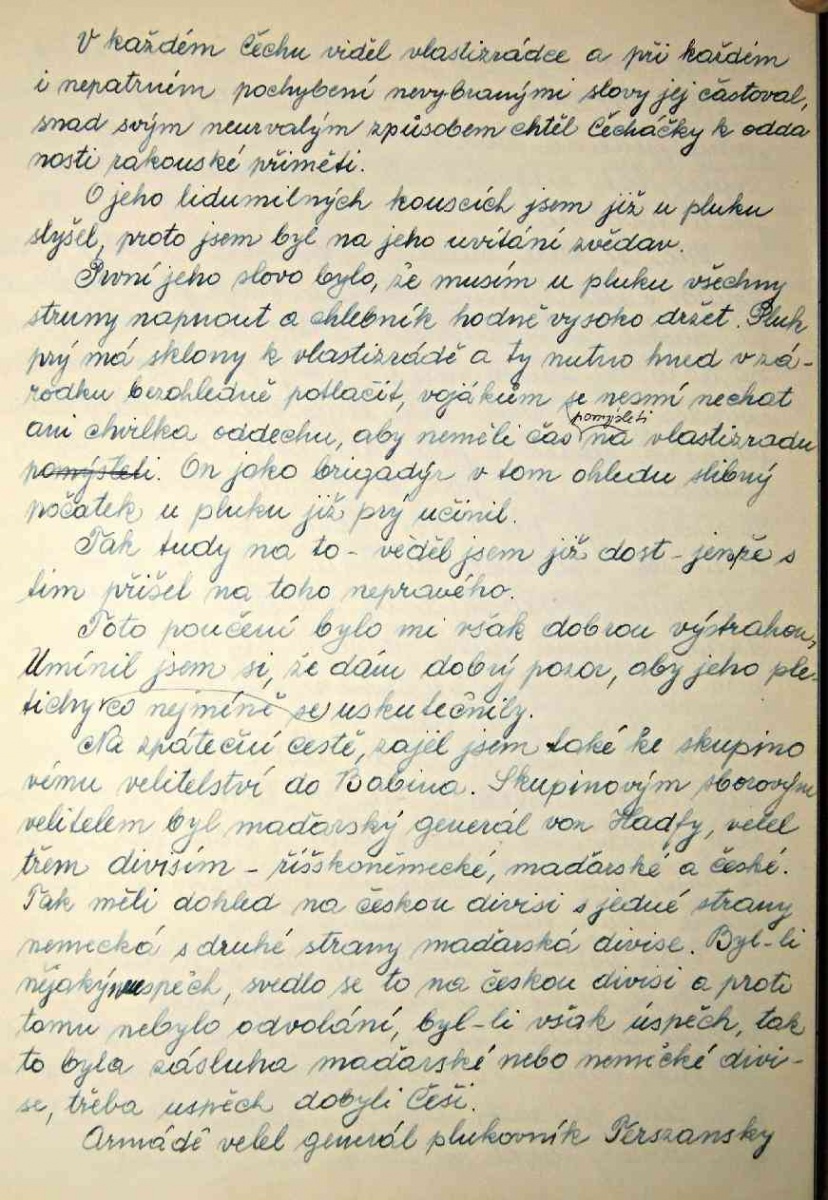 V každém Čechu viděl vlastizrádce a při každém
i nepatrném pochybení nevybranými slovy jej častoval,
snad svým neurvalým způsobem chtěl Čecháčky k odda
nosti rakouské přiměti.
O jeho lidumilných kouscích jsem již u pluku
slyšel, proto jsem byl na jeho uvítání zvědav.
První jeho slovo bylo, že musím u pluku všechny
struny napnout a chlebník hodně vysoko držet. Pluk
prý má sklony k vlastizrádě a ty nutno hned v zá-
rodku bezohledně potlačit, vojákům se nesmí nechat
pomýšleti
ani chvilka oddechu, aby neměli čas na vlastizradu
pomýšleti. On jako brigadýr v tom ohledu slibný
počátek u pluku již prý učinil.
Tak tudy na to - věděl jsem již dost - jenže s
tím přišel na toho nepravého.
Toto poučení bylo mi však dobrou výstrahou,
Umínil jsem si, že dám dobrý pozor, aby jeho ple-
tichy co nejméně se uskutečnily.
Na zpáteční cestě, zajel jsem také ke skupino
vému velitelství do Babina. Skupinovým sborovým
velitelem byl maďarský generál von Hadfy, velel
třem divisím - říšskoněmecké, maďarské a české.
Tak měli dohled na českou divisi s jedné strany
německá s druhé strany maďarská divise. Byl-li
nějaký neuspěch, svedlo se to na českou divisi a proti
tomu nebylo odvolání, byl-li však úspěch, tak
to byla zásluha maďarské nebo německé divi-
se, třeba uspěch dobyli Češi.
Armádě velel generál plukovník Perszansky